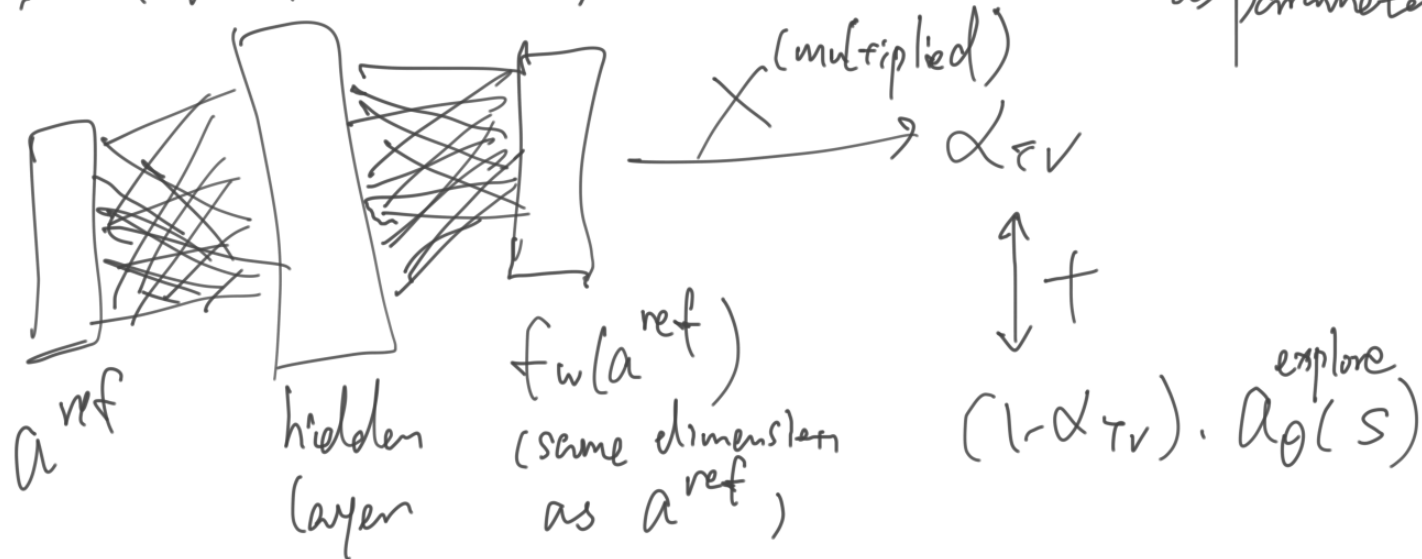 as paramete
(multiplied)
α_TV
a^ref
hidden
layer
f_w(a^ref)
(same dimension
as a^ref)
+
(1-α_TV). a_θ^explore(s)